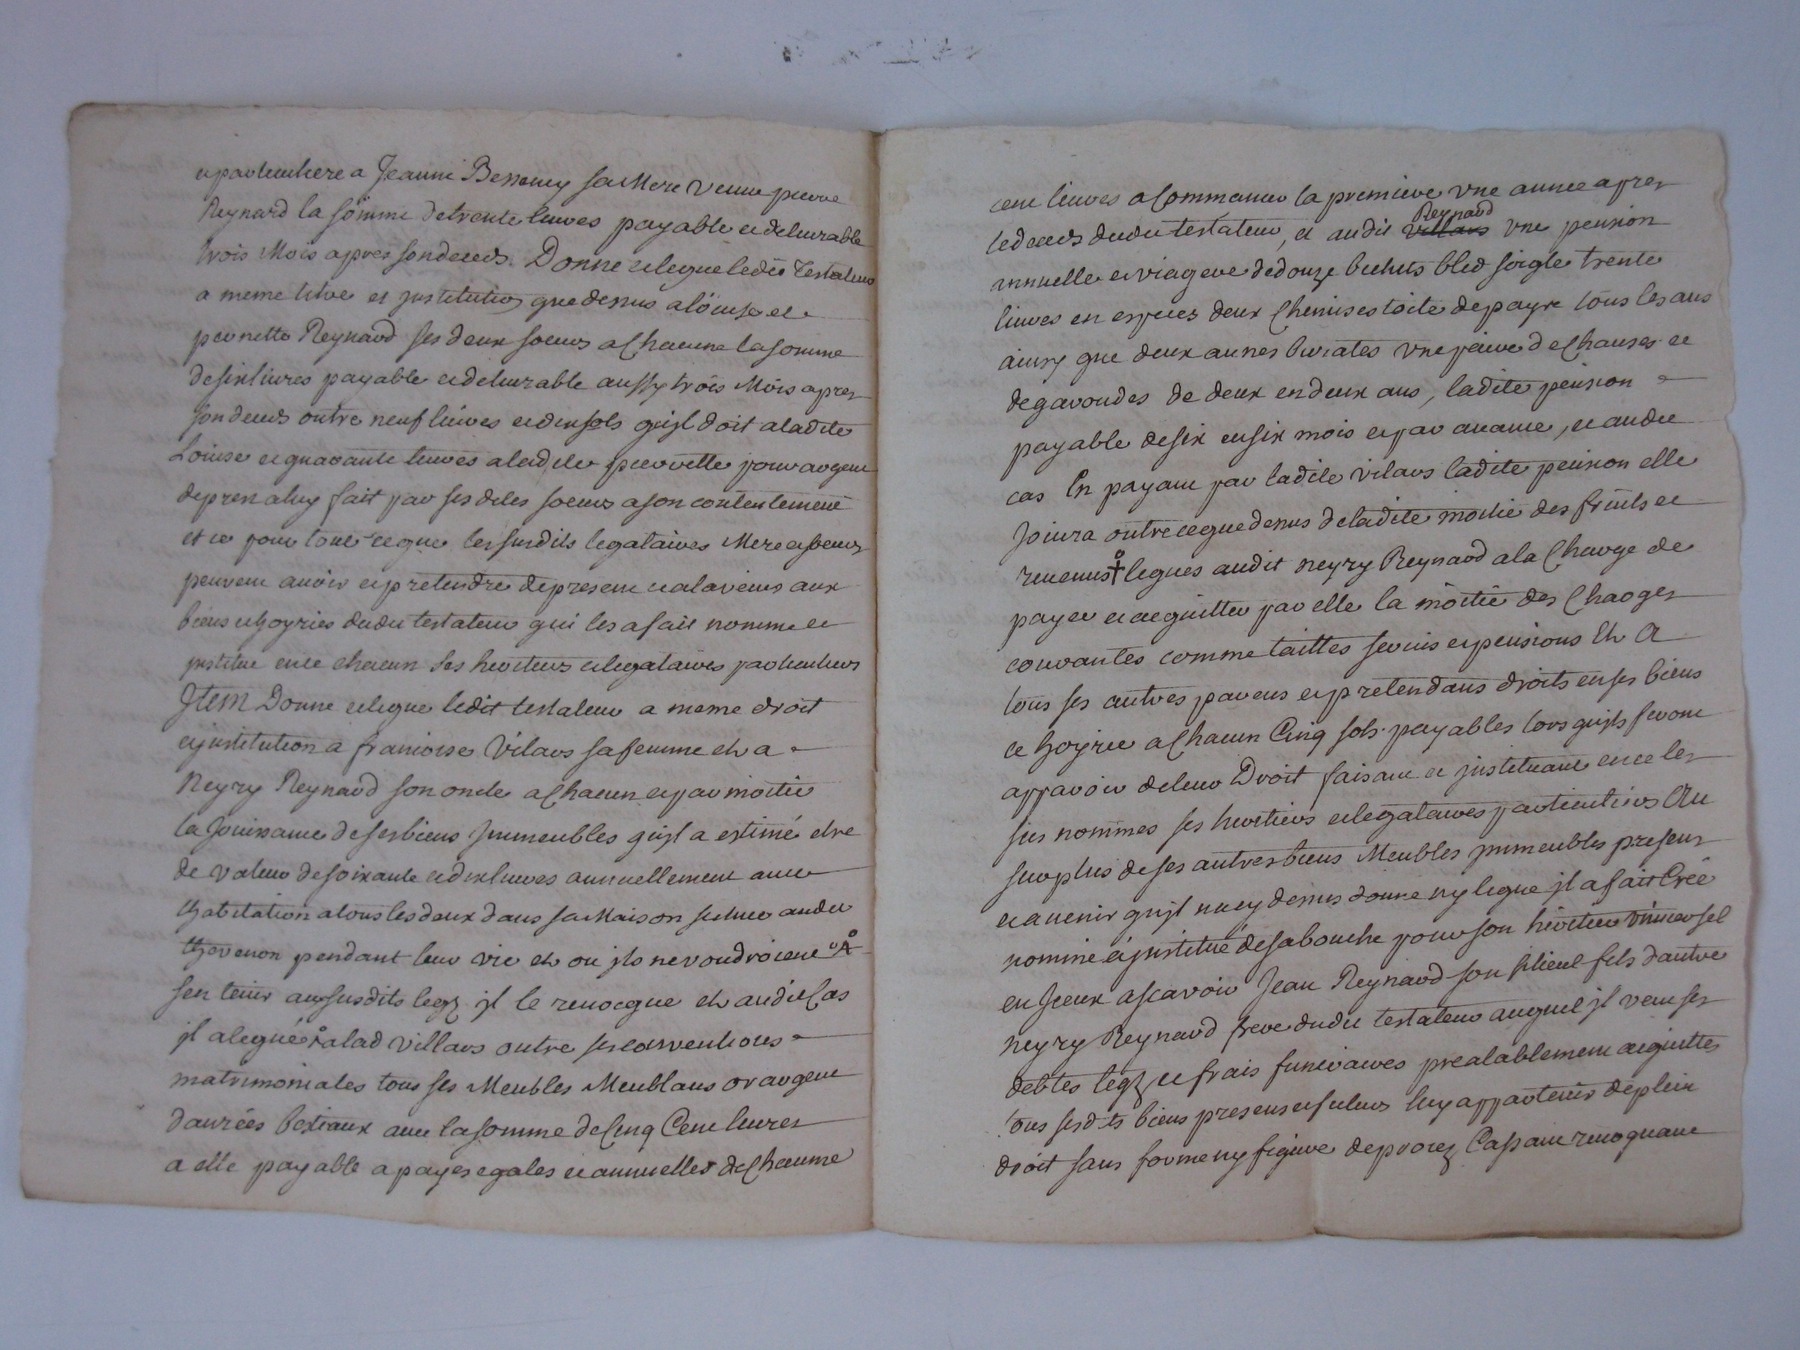 et particuliere a Jeanne Bessenay sa Mere veuve pierre
Reynard la somme de trente livres payable et delivrable
trois Mois apres son deceds. Donne et legue ledit Testateur
a meme titre et jnstitution que dessus a löuise et
pernette Reynard ses deux soeurs a Chacune la somme
de six livres payable et delivrable aussy trois Mois apres
son deceds outre neuf livres et dix sols qu'jl doit a ladite
Löuise et quarante livres a ladite pernette pour argent
de prest a luy fait par ses dites soeurs a son contentement
et ce pour tout ce que les susdits legataires Mere et soeurs
peuvent avoir et pretendre de present et a l'avenir aux
biens et hoyries dudit testateur qui les a fait nommé et
jnstitué en ce chacun ses heritiers et legataires particuliers
Jtem Donne et legue ledit testateur a meme droit
et jnstitution a francoise Vilars sa femme et a
Neyry Reynard son oncle a Chacun et par moitié
la Jouissance de ses biens Jmmeubles qu'jl a estimé etre
de valeur de soixante et dix livres annuellement avec
lhabitation a tous les deux dans sa Maison scituee audit
Thevenon pendant leur vie et ou jls ne voudroient
s'en tenir aux susdits legz jl le revocque et audit Cas
jl a legué a lad villars outre ses conventions
matrimoniales tous ses Meubles Meublans or argent
danrées bestiaux avec la somme de Cinq Cent livres
a elle payable a payes egales et annuelles de Chacune
cent livres a Commancer la premiere vne annee apres
le deceds dudit testateur, et audit villars Reynard vne pension
annuelle et viagere de douze bichets bled soigle trente
livres en especes deux Chemises toile de pays tous les ans
ainsy que deux aunes burates vne paire de Chauses et
de gavoudes de deux en deux ans, ladite pension
payable de six en six mois et par avance, et audit
cas En payant par ladite vilars ladite pension elle
Joiura outre ce que dessus de ladite moitié des fruits et
revenus legués audit neyry Reynard a la Charge de
payer et acquitter par elle la moitié des Charges
courantes comme taittes servis et pensions Et A
tous ses autres parens et pretendans droits en ses biens
et hoyrie a Chacun Cinq sols payables lors qu'jls feront
apparoir de leur Droit faisant et jnstituant en ce les
sus nommés ses heritiers et legataires particuliers Au
surplus de ses autres biens Meubles jmmeubles presens
et a venir qu'jl n'a cy dessus donné ny legué jl a fait Créé
nommé et jnstitué de sa bouche pour son heritier vniversel
en Jceux ascavoir Jean Reynard son filieul fils d'autre
neyry Reynard frere dudit testateur auquel jl veut ses
debtes legz et frais funeraires prealablement acquittés
tous sesdts biens presens et futurs luy appartenir de plein
droit sans forme ny figure de procez Cassant revoquant